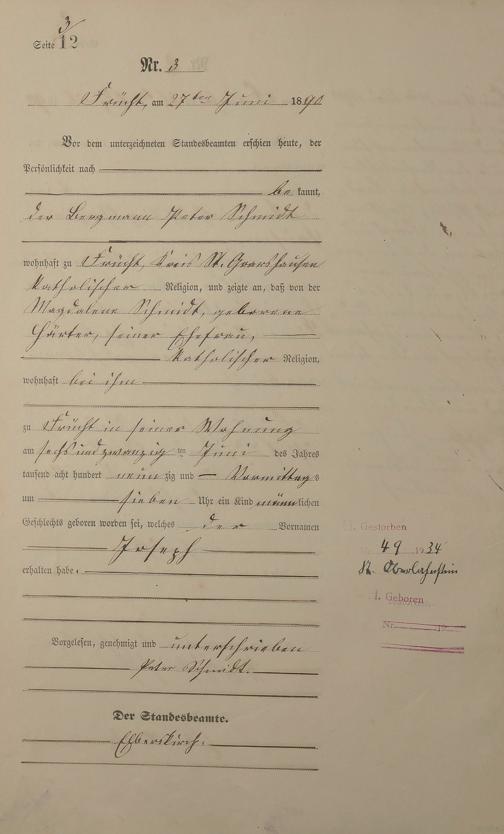 3
Seite 12
Nr. 3
Frücht, am 27ten Juni 1890
Vor dem unterzeichneten Standesbeamten erschien heute, der
Persönlichkeit nach
be kannt,
der Bergmann Peter Schmidt
wohnhaft zu Frücht, Kreis St. Goarshausen
katholischer Religion, und zeigte an, daß von der
Magdalena Schmidt, geborene
seiner Ehefrau,
katholischer Religion,
wohnhaft bei ihm
zu Frücht in seiner Wohnung
am sechsundzwanzigten Juni des Jahres
tausend acht hundert neun zig und Vormittags
um sieben Uhr ein Kind männlichen
Geschlechts geboren worden sei, welches der Vornamen
Joseph
erhalten habe.
Vorgelesen, genehmigt und unterschrieben
Peter Schmidt.
Der Standesbeamte.
Gestorben
49 1934
St. Oberlahnstein
I. Geboren
Nr. 19